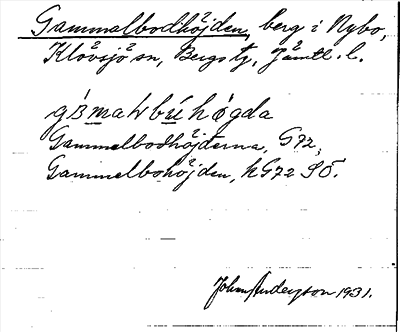 Gammalbodhöjden, berg i Nybo,
Klövsjö sn, Bergs tg, Jämtl. l.
Gammalbodhöjderna, G72,
Gammelbohöjden, kG72 SÖ.
John Anderzon 1931.